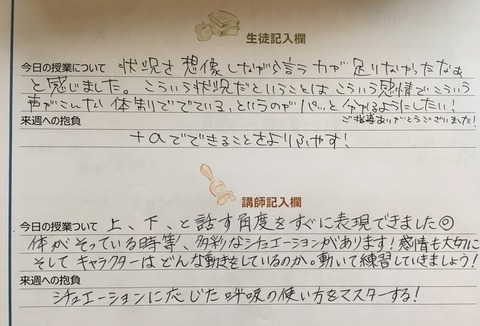 生徒記入欄
今日の授業について 状況を想像しながら言う力が足りなかったなぁ
と感じました。こういう状況だということはこういう感情でこういう
声がこんな体制ででている、というのがパッと分かるようにしたい!
ご指導ありがとうございました!
来週への抱負
+αでできることをよりふやす!
講師記入欄
今日の授業ついて 上、下、と話す角度をすぐに表現できました◎
体がそっている時等、多彩なシチュエーションがあります!感情も大切に
そしてキャラクターはどんな動きをしているのか。動いて練習していきましょう!
来週への抱負
シチュエーションに応じた呼吸の使い方をマスターする!